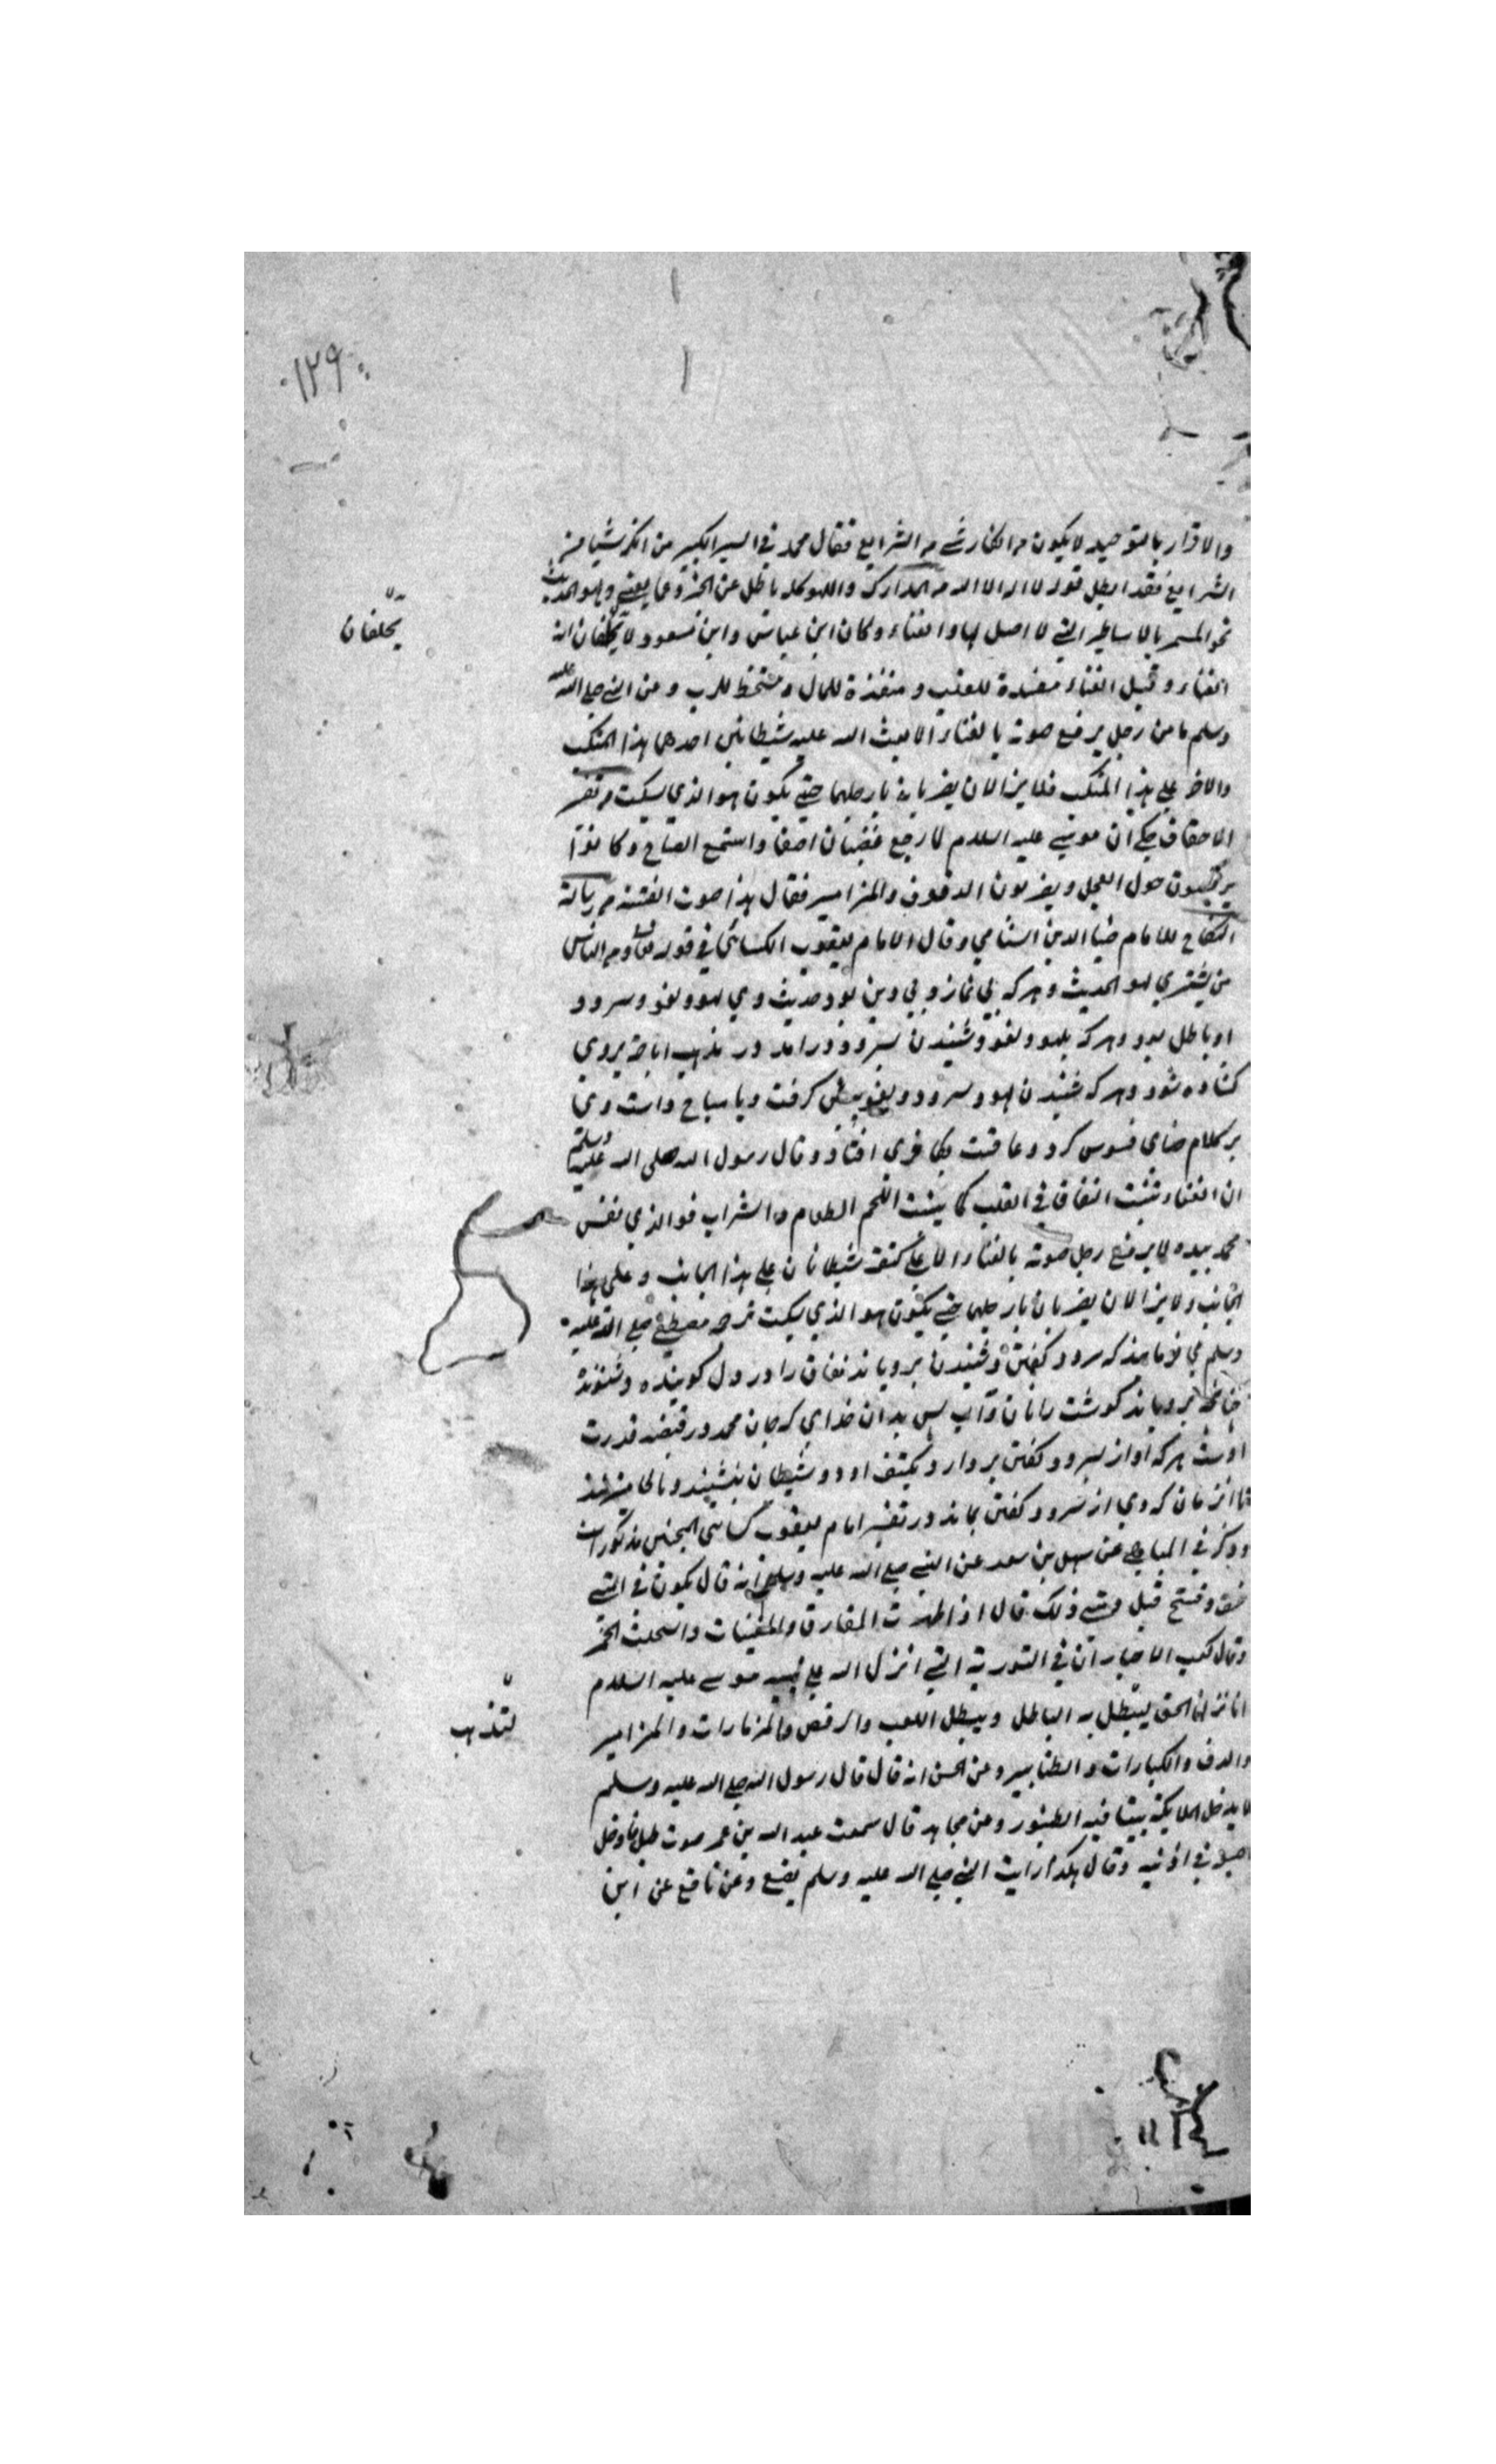 ١٢٩
والاقرار بالتوحيد لا يكون مع انكار شئ من الشرايع فقال محمد في السير الكبير من انكر شيا من
الشرايع فقد ابطل قول لا اله الا الله من المدارك واللهو كل باطل عن الخير وعما يعني ولهو الحديث
نحو السمر بالاساطير التي لا اصل لها والغناء وكان ابن عباس وابن مسعود لا يحلفان انه
يحلفان
الغناء وقيل الغناء مفسدة للقلب و منفذة للمال و مسخطة للرب و عن النبي صلى الله عليه
وسلم ما من رجل يرفع صوته بالغناء الا بعث الله عليه شيطانين احدهما هذا المنكب
والاخر على هذا المنكب فلا يزالان يضربانه بارجلهما حتى يكون هو الذي يسكت من تفسير
الاحقاف حكي ان موسى عليه السلام لما رجع غضبان اسفا واستمع الصياح وكانوا
يرقصون حول العجل ويضربون الدفوف والمزامير فقال هذا صوت الفتنة من رسالة
النكاح للامام ضياء الدين الشامي وقال الامام يعقوب الكسائي في قوله تعالى ومن الناس
من يشتري لهو الحديث وهر كه بي نماز و بي دين بود حديث وي لهو ولغو و سرود
او باطل بود و هر كه بلهو و لغو و شنيدن سرود درامد در مذهب اباحة بروي
كشاده شود و هر كه شنيدن لهو و سرود و لغو كرفت و يا مباح داشت وي
بر كلام خداى فسوس كرد و عاقبت بكافرى افتاد و قال رسول الله صلى الله عليه وسلم
ان الغناء تنبت النفاق في القلب كما ينبت اللحم الطعام والشراب فوالذي نفس
محمد بيده لا يرفع رجل صوته بالغناء الا على كتفه شيطانان على هذا الجانب و على هذا
الجانب ولا يزالان يضربان بارجلهما حتى يكون هو الذي يسكت شرح مصطفى صلى الله عليه
وسلم مي فرمايد كه سرود كفتن و شنيدن بروياند نفاق را در دل كوينده و شنونده
چنانكه بروياند كوشت را نان و آب پس بدان خداى كه جان محمد در قبضه قدرت
اوست هر كه اواز بسرود كفتن بردارد بكتف او دو شيطان بنشينند و پايها ميزنند
تا انزمان كه وي از سرود كفتن بماند در تفسير امام يعقوب كسائي همچنين مذكورست
وذكر في عن سهل بن سعد عن النبي صلى الله عليه وسلم انه قال يكون في امتي
خسف و قيل متى ذلك قال اذا ظهرت المعازف والمغنيات و استحلت الخمر
وقال كعب الاحبار ان في التورية التي انزل الله على نبيه موسى عليه السلام
انا نزلنا الحق ليبطل به الباطل و يبطل اللعب والرقص والمزمارات والمزامير
ليذهب
والدف والكبارات والطنابير وعن الحسن انه قال قال رسول الله صلى الله عليه وسلم
لا يدخل الملايكة بيتا فيه الطنبور وعن مجاهد قال سمعت عبد الله بن عمر صوت طبل فادخل
اصبعيه في اذنيه وقال هكذا رايت النبي صلى الله عليه وسلم يصنع وعن نافع عن ابن